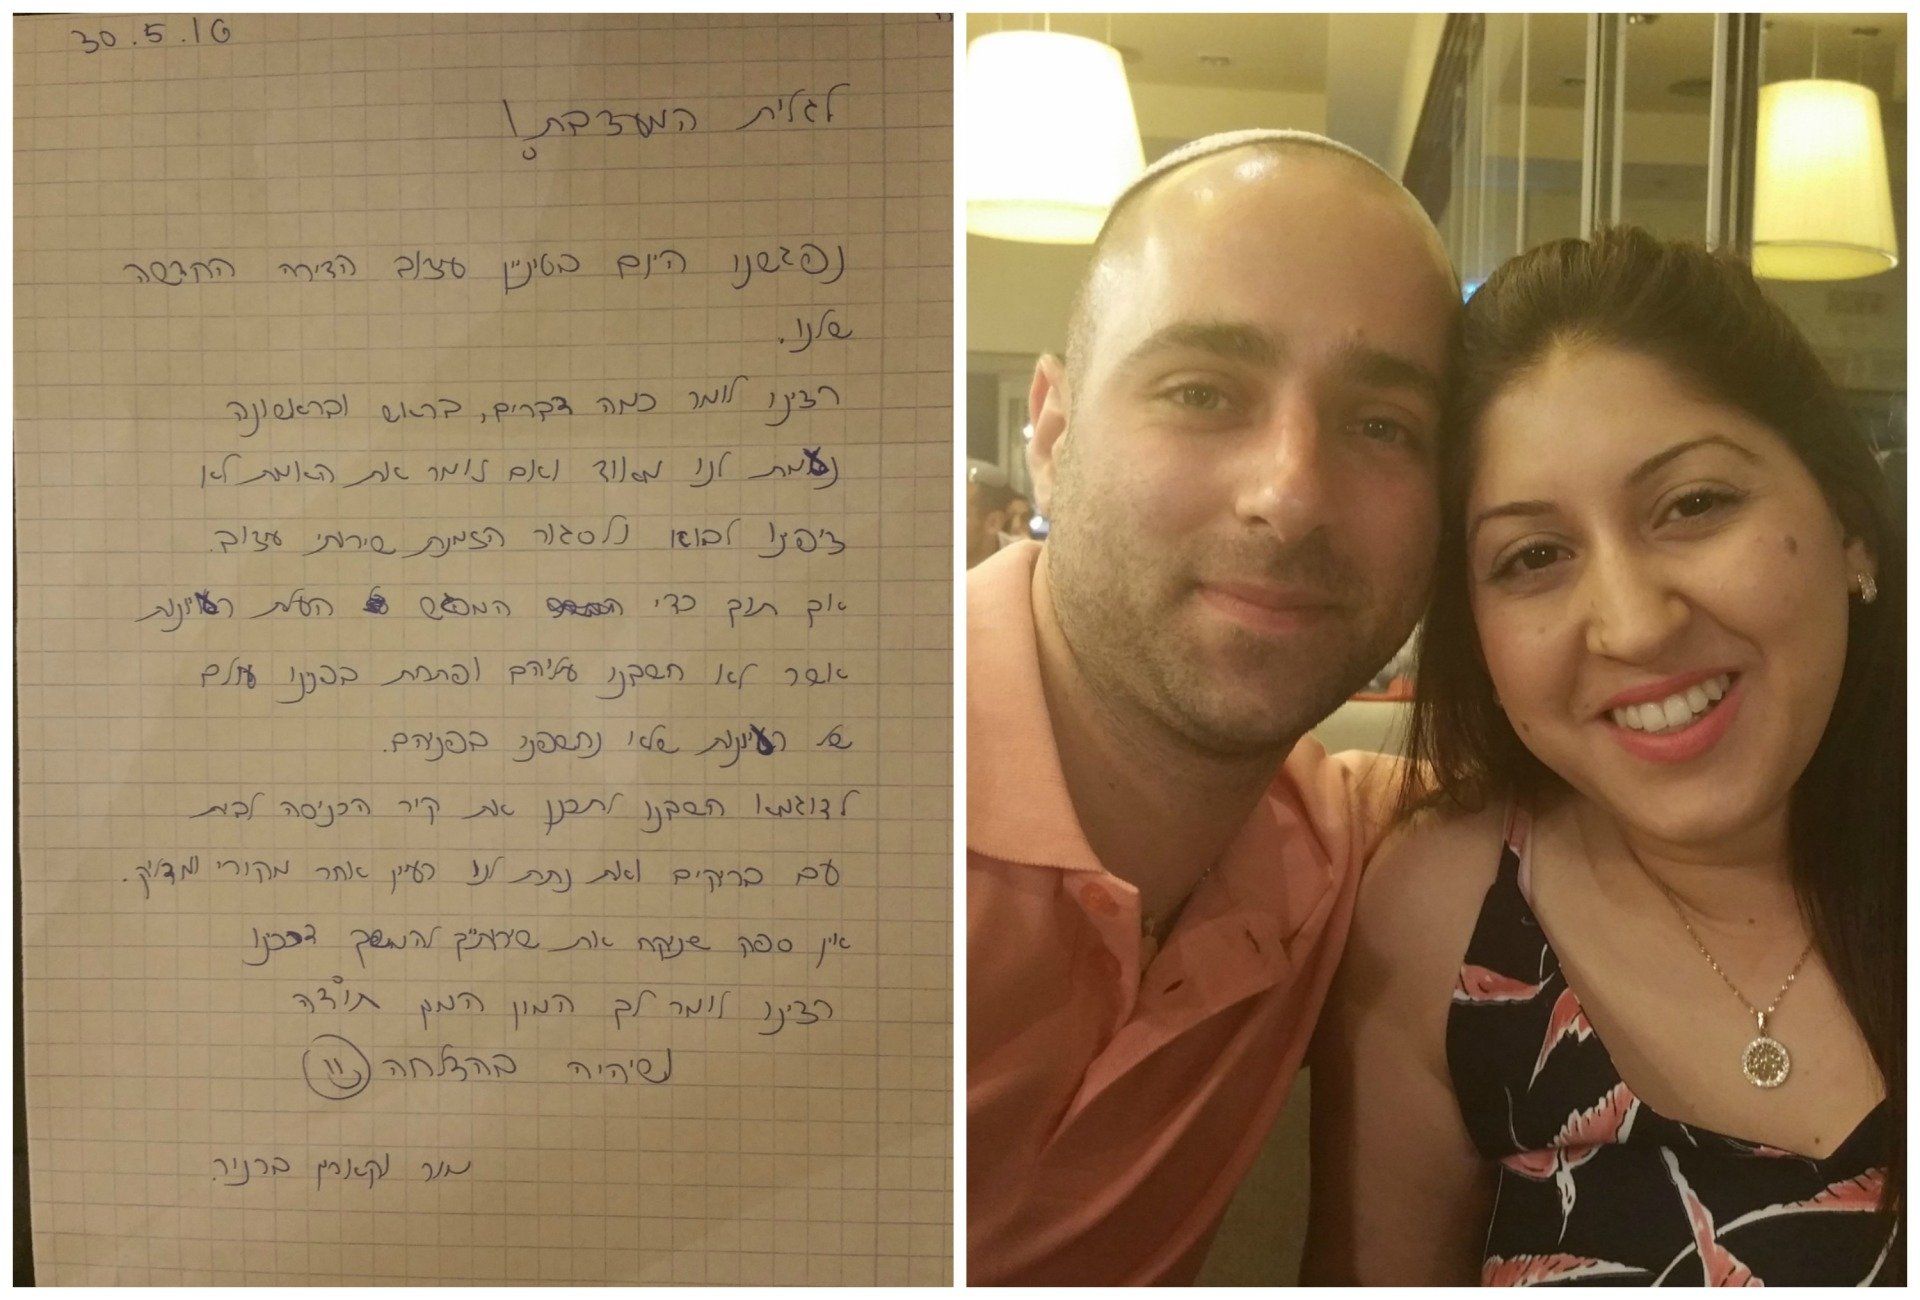 30.5.16
לגלית המעצבת!
נפגשנו היום בעיניין עיצוב הדירה החדשה
שלנו.
רצינו לומר כמה דברים, בראש ובראשונה
נעמת לנו מאוד ואם לומר את האמת לא
ציפינו לבוא ולסגור הזמנת שירותי עיצוב.
אך תוך כדי המפגש העלת רעיונות
אשר לא חשבנו עליהם ופתחת בפננו עולם
של רעיונות שלא נחשפנו בפניהם.
לדוגמא חשבנו לתכנן את קיר הכניסה לבית
עם בריקים ואת נתת לנו רעיון אחר מקורי ומדליק.
אין ספק שניקח את שירותייך להמשך דרכינו
רצינו לומר לך המון המון תודה
ושיהיה בהצלחה
מור וקארין ברניר.